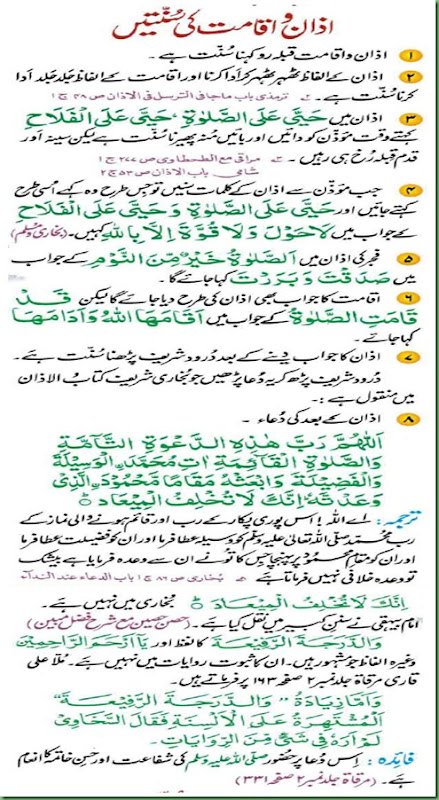 اذان و اقامت کی سُنّتیں
۱ اذان و اقامت قبلہ رو کہنا سُنّت ہے۔
۲ اذان کے الفاظ ٹھہر ٹھہر کر اَدا کرنا اور اقامت کے الفاظ جَلد جَلد ادا
کرنا سُنّت ہے۔ ترمذی باب ماجا فی الترسل فی الاذان ص ۴۸ ج ۱
۳ اذان میں حَیَّ عَلَی الصَّلٰوةِ، حَیَّ عَلَی الْفَلَاحِ
کہتے وقت مؤذّن کو دائیں اور بائیں مُنہ پھیرنا سُنّت ہے لیکن سینہ اَور
قدم قبلہ رُخ ہی رہیں۔ مراقی مع الطحطاوی ص ۲۷۷ ج ۱
شامی باب الاذان ص ۵۳ ج ۲
۴ جب مؤذّن سے اذان کے کلمات سُنیں تو جِس طرح وہ کہے اُسی طرح
کہتے جائیں اور حَیَّ عَلَی الصَّلٰوةِ وَ حَیَّ عَلَی الْفَلَاحِ
کے جواب میں لَاحَوْلَ وَلَا قُوَّةَ اِلَّا بِاللهِ کہیں۔ (بخاری و مُسلم)
۵ فجر کی اذان میں اَلصَّلٰوةُ خَیْرٌ مِّنَ النَّوْمِ کے جواب
میں صَدَقْتَ وَ بَرَرْتَ کہا جائے گا۔
۶ اقامت کا جواب بھی اذان کی طرح دیا جائے گا لیکن قَدْ
قَامَتِ الصَّلٰوةُ کے جواب میں اَقَامَهَا اللهُ وَاَدَامَهَا
کہا جائے۔
۷ اذان کا جواب دینے کے بعد دُرود شریف پڑھنا سُنّت ہے۔
دُرود شریف پڑھ کر یہ دُعا پڑھیں جو بُخاری شریف کتابُ الاذان میں
میں منقول ہے :۔
۸ اذان کے بعد کی دُعاء ۔
اَللّٰهُمَّ رَبَّ هٰذِهِ الدَّعْوَةِ التَّآمَّةِ
وَالصَّلٰوةِ الْقَآئِمَةِ اٰتِ مُحَمَّدَ نِ الْوَسِیْلَةَ
وَالْفَضِیْلَةَ وَابْعَثْهُ مَقَامًا مَّحْمُوْدَ نِ الَّذِیْ
وَعَدْتَّهٗ اِنَّكَ لَا تُخْلِفُ الْمِیْعَادَ
ترجمہ: اے اللہ! اس پوری پکار کے رب اور قائم ہونے والی نماز کے
رب محمّد صلی اللہ تعالیٰ علیہ وسلم کو وسیلہ عطا فرما اور ان کو فضیلت عطا فرما
اور ان کو مقامِ محمود پر پہنچا جِس کا تُو نے ان سے وعدہ فرمایا ہے بیشک
تو وعدہ خلافی نہیں فرماتا ہے بُخاری ص ۸۶ ج ۱ باب الدعاء عند الندآء
اِنَّكَ لَا تُخْلِفُ الْمِیْعَادَ بُخاری میں نہیں ہے۔
امام بیہقی نے سننِ کبیر میں نقل کیا ہے۔ (حصن حصین مع شرح فضل مبین)
وَالدَّرَجَةَ الرَّفِیْعَةَ کا لفظ اور یَآ اَرْحَمَ الرّٰحِمِیْنَ
وغیرہ الفاظ جو مشہور ہیں۔ ان کا ثبوت روایات میں نہیں ہے۔ مُلّا علی
قاری مرقاة جلد نمبر ۲ صفحہ ۱۶۳ پر فرماتے ہیں۔
وَاَمَّا زِیَادَةُ "وَالدَّرَجَةَ الرَّفِیْعَةَ"
اَلْمُشْتَهِرَةُ عَلَی الْاَلْسِنَةِ فَقَالَ السَّخَاوِیُّ
لَمْ اَرَهٗ فِیْ شَیْءٍ مِّنَ الرِّوَایَاتِ۔
فائدہ: اِس دُعا پر حضُور صلی اللہ علیہ وسلم کی شفاعت اور حُسنِ خاتمہ کا انعام
ہے۔ (مرقاة جلد نمبر ۲ صفحہ ۳۳۱)